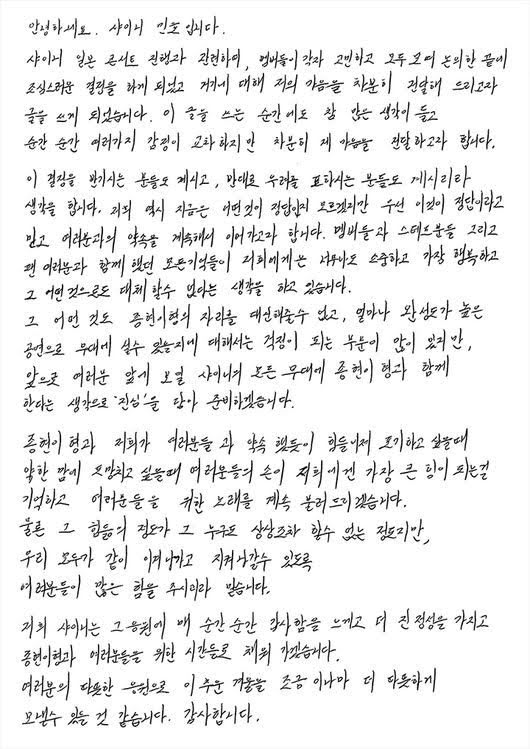 안녕하세요. 샤이니 민호입니다.
샤이니 일본 콘서트 진행과 관련하여, 멤버들이 각자 고민하고 모두 모여 논의한 끝에
조심스러운 결정을 하게 되었고 거기에 대해 저의 마음을 차분히 전달해 드리고자
글을 쓰게 되었습니다. 이 글을 쓰는 순간에도 참 많은 생각이 들고
순간 순간 여러가지 감정이 교차하지만 차분히 제 마음을 전달하고자 합니다.
이 결정을 반기시는 분들도 계시고, 반대로 우려를 표하시는 분들도 계시리라
생각을 합니다. 저희 역시 지금은 어떤것이 정답인지 모르겠지만 우선 이것이 정답이라고
믿고 여러분과의 약속을 계속해서 이어가고자 합니다. 멤버들과 스텝분들 그리고
팬 여러분과 함께 했던 모든기억들이 저희에게는 너무나도 소중하고 가장 행복하고
그 어떤 것으로도 대체 할수 없다는 생각을 하고 있습니다.
그 어떤 것도 종현이형의 자리를 대신해줄수 없고, 얼마나 완성도가 높은
공연으로 무대에 설수 있을지에 대해서는 걱정이 되는 부분이 많이 있지만,
앞으로 여러분 앞에 보일 샤이니의 모든 무대에 종현이형과 함께
한다는 생각으로 '진심'을 담아 준비하겠습니다.
종현이형과 저희가 여러분들과 약속 했듯이 힘들어서 포기하고 싶을때
약한 맘에 도망치고 싶을때 여러분들의 손이 저희에겐 가장 큰 힘이 되는걸
기억하고 여러분들을 위한 노래를 계속 불러드리겠습니다.
물론 그 힘듦의 정도가 그 누구도 상상조차 할수 없는 정도지만,
우리 모두가 같이 이겨나가고 지켜나갈수 있도록
여러분들이 많은 힘을 주시리라 믿습니다.
저희 샤이니는 그 응원에 매 순간순간 감사함을 느끼고 더 진정성을 가지고
종현이형과 여러분들을 위한 시간들로 채워 가겠습니다.
여러분의 따뜻한 응원으로 이 추운 겨울을 조금이나마 더 따듯하게
보낼수 있을 것 같습니다. 감사합니다.